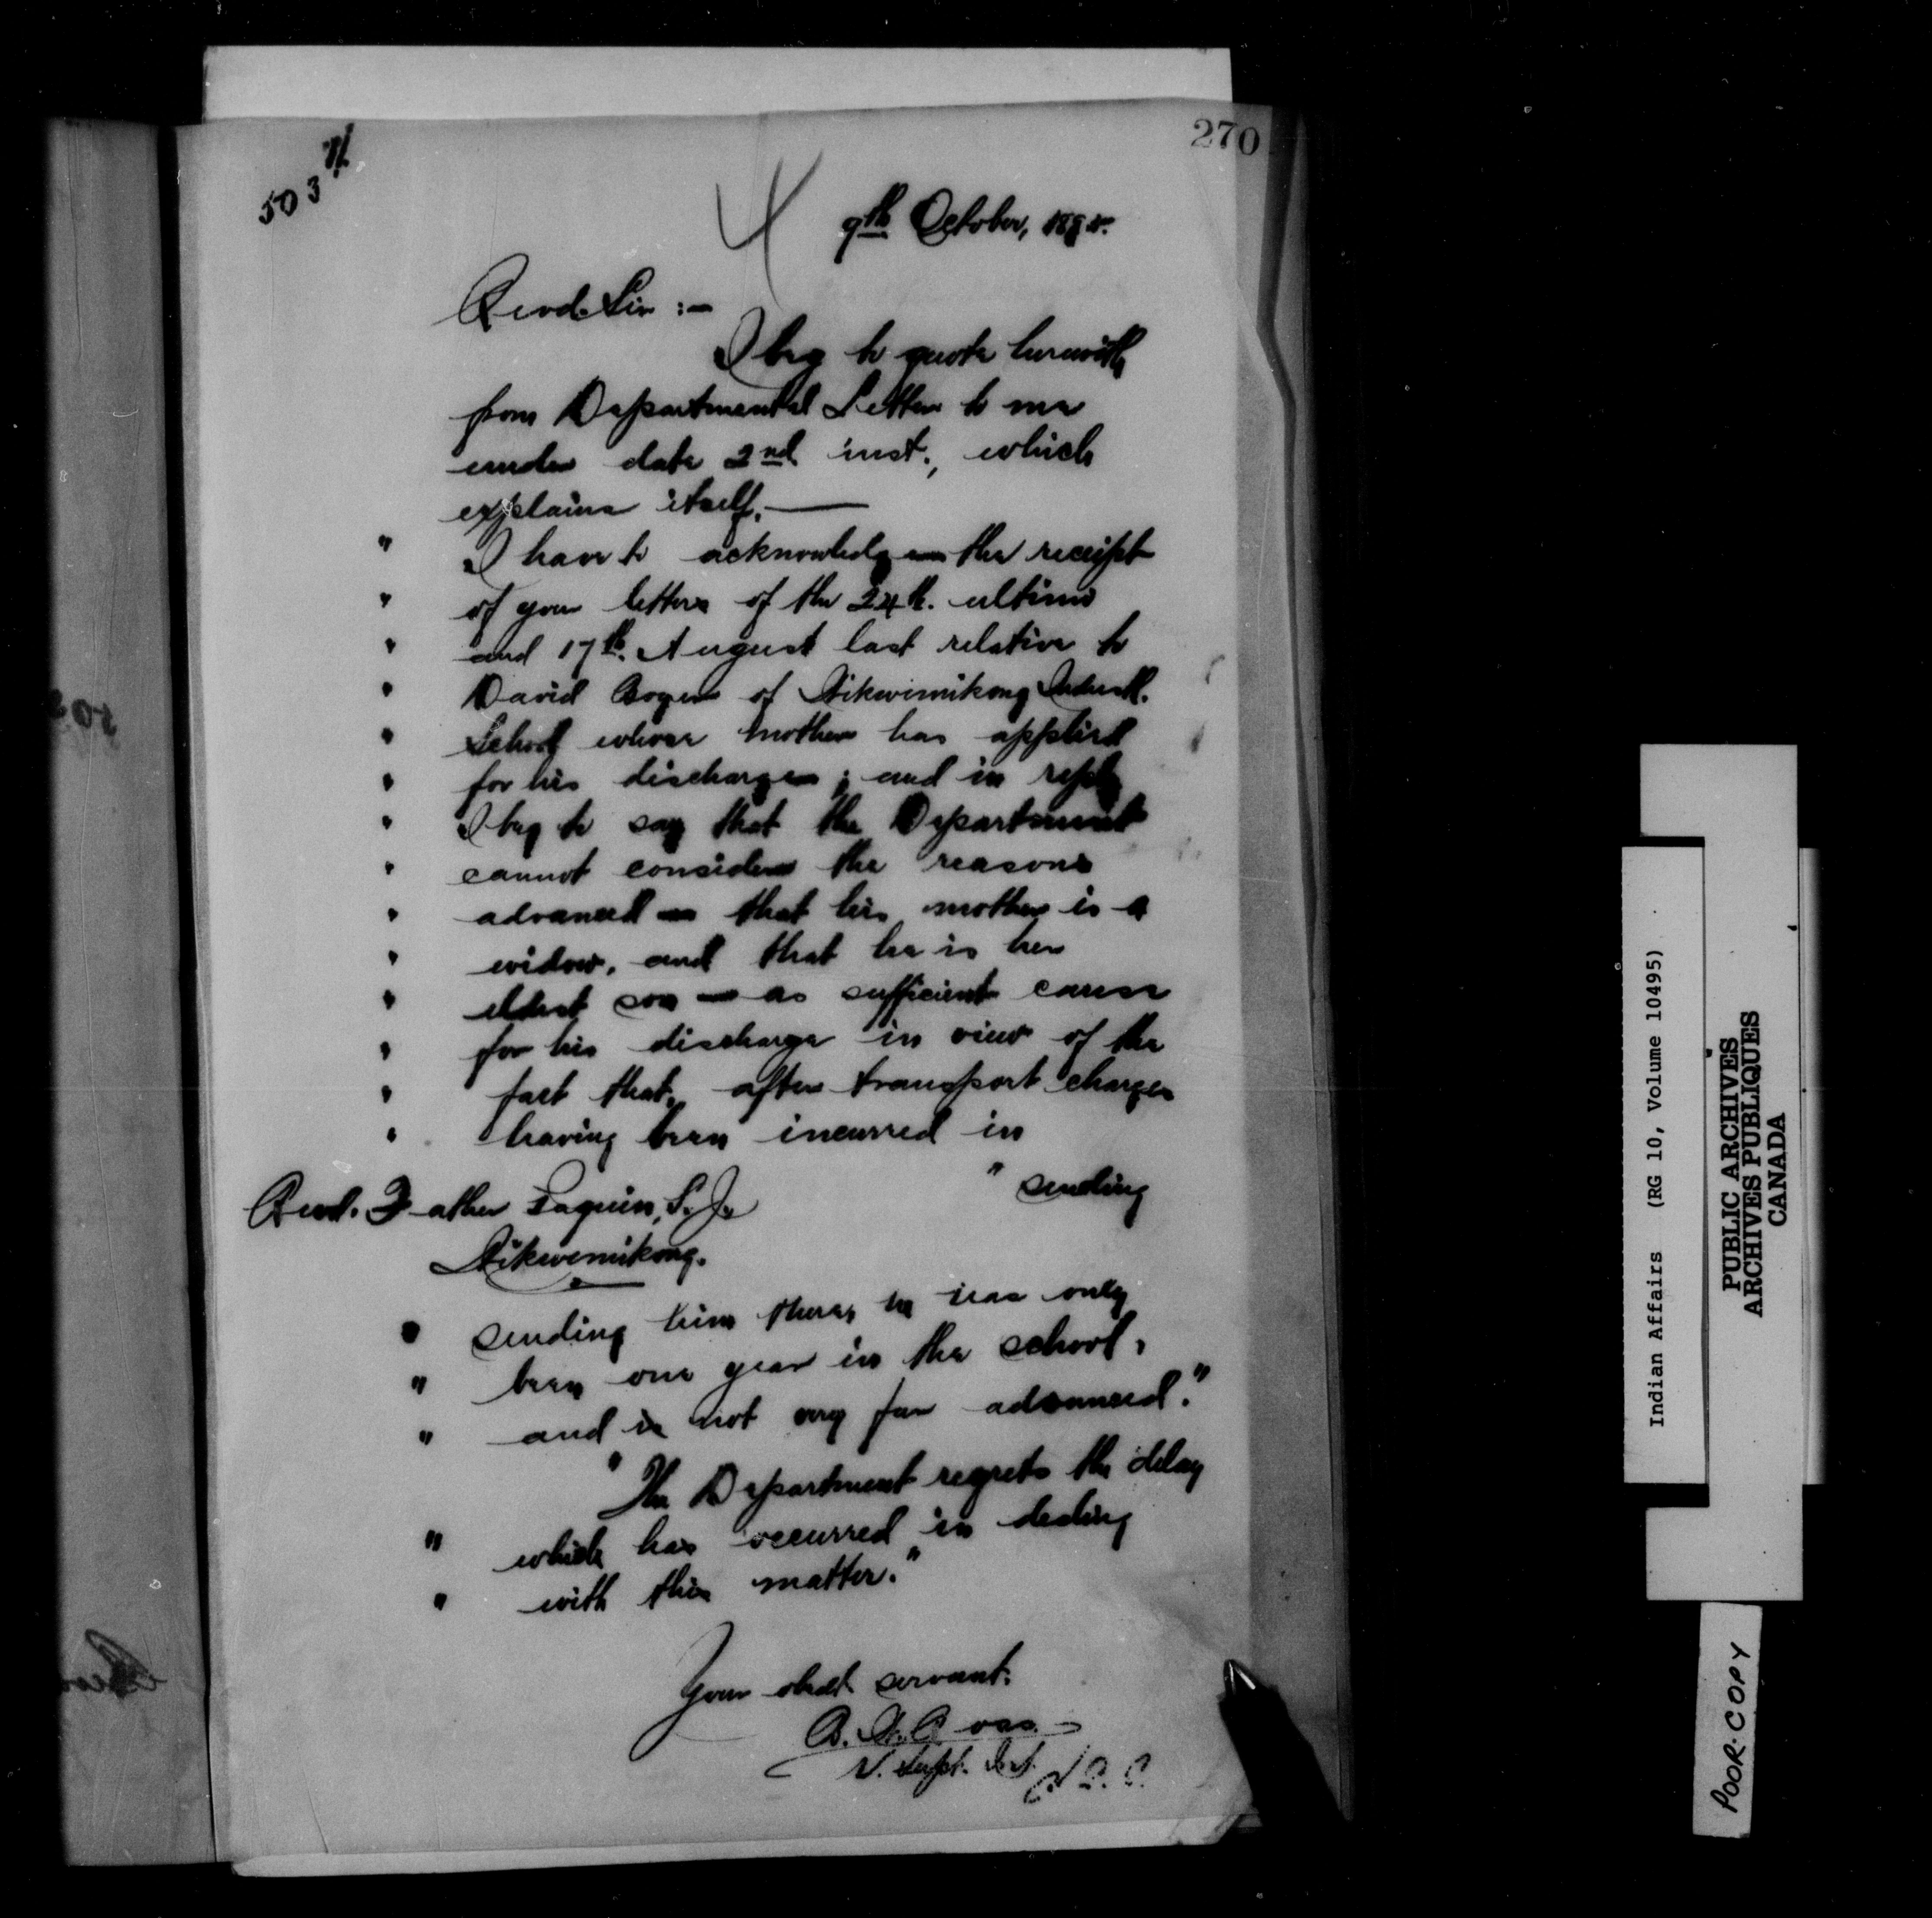 270
503
9th October, 189
Revd. Sir :-
I beg to quote herewith
from Departmental Letter to me
under date 2nd inst., which
explains itself. —
" I have to acknowledge the receipt
" of your letters of the 24th. ultimo
" and 17th. August last relative to
" David of Wikwemikong Industl.
" School whose mother has applied
" for his discharge ; and in reply
" I beg to say that the Department
" cannot consider the reasons
" advanced — that his mother is a
" widow, and that he is her
" eldest son — as sufficient cause
" for his discharge in view of the
" fact that, after transport charges
" having been incurred in
" sending
Revd. Father Paquin, S.J.
Wikwemikong.
" sending him there, he has only
" been one year in the school,
" and is not very far advanced."
" The Department regrets the delay
" which has occurred in dealing
" with this matter."
Your obedt. servant.
B. W. Ross.
V. Supt.
Indian Affairs (RG 10, Volume 10495)
PUBLIC ARCHIVES
ARCHIVES PUBLIQUES
CANADA
POOR COPY